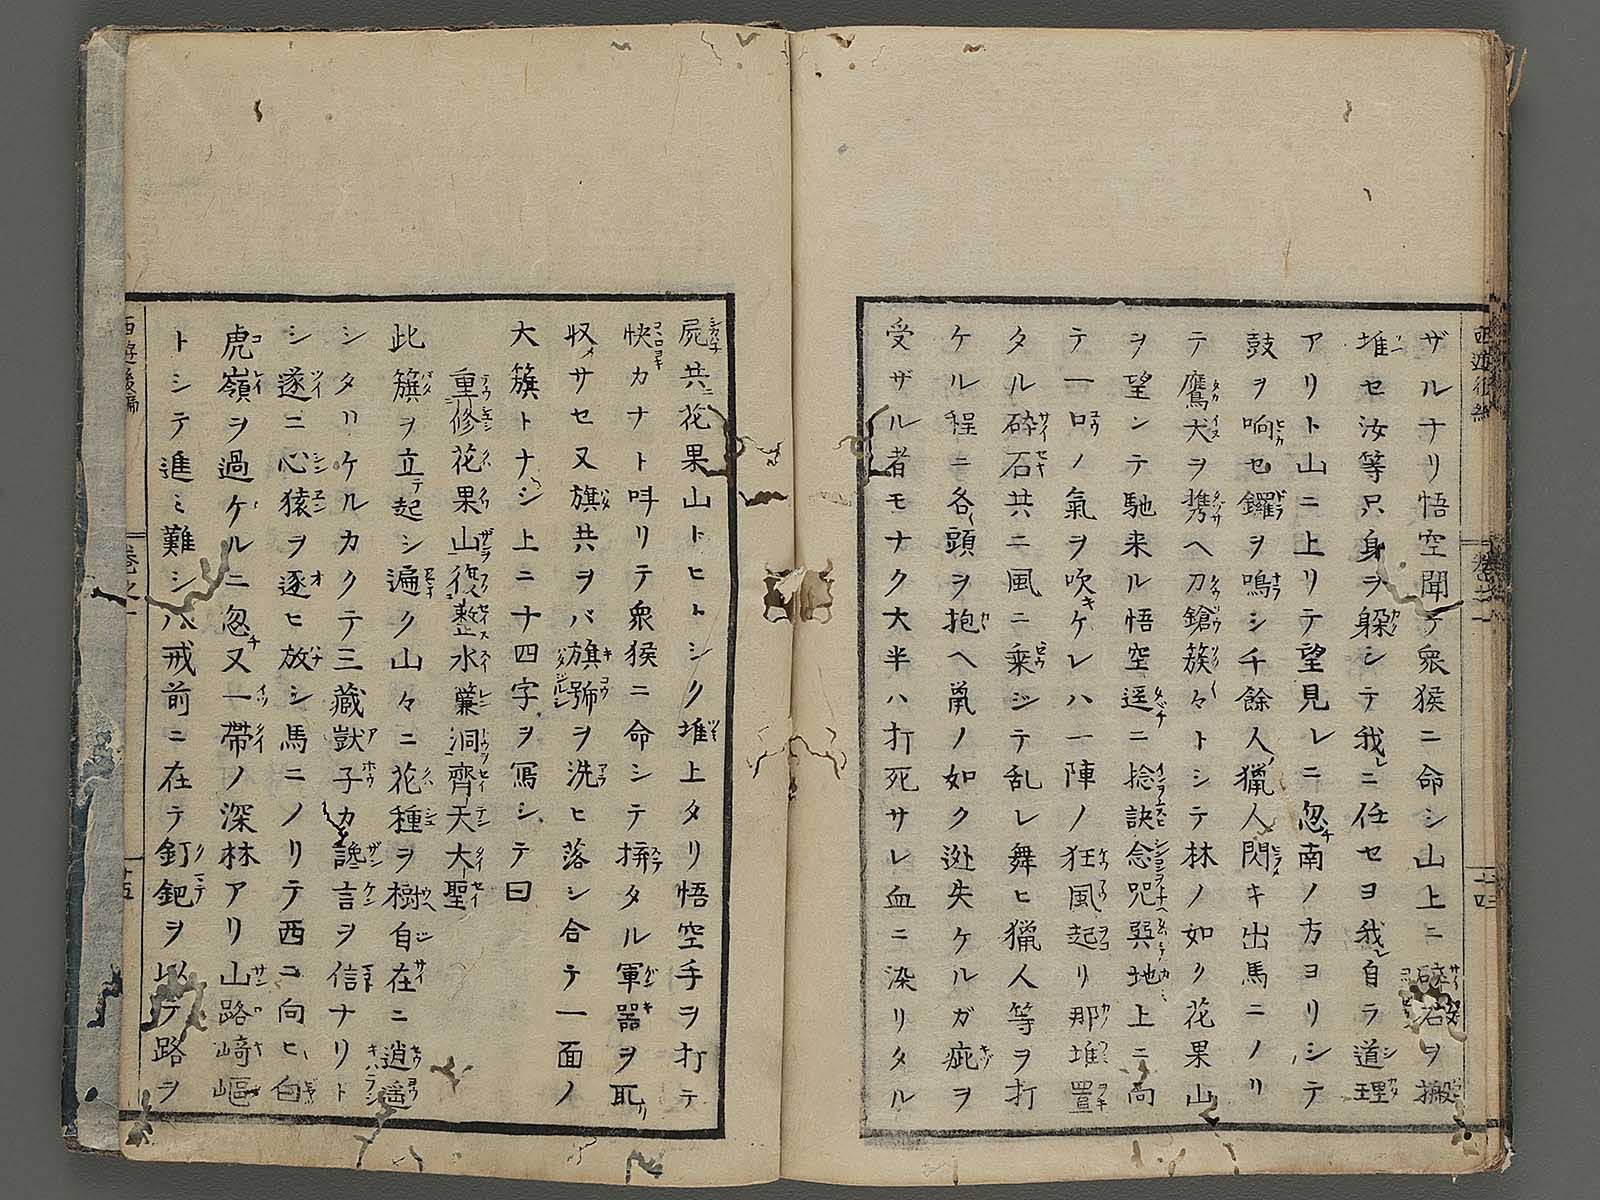 ザルナリ悟空聞テ衆猴ニ命シ山上ニ碎石ヲ搬
堆セ汝等只身ヲ躱シテ我ニ任セヨ我自ラ道理
アリト山ニ上リテ望見レニ忽チ南ノ方ヨリシテ
鼓ヲ响セ鑼ヲ鳴シ千餘人ノ獵人閃キ出馬ニノリ
テ鷹犬ヲ携ヘ刀鎗簇々トシテ林ノ如ク花果山
ヲ望ンテ馳来ル悟空遥ニ捻訣念咒巽地上ニ向
テ一口ノ氣ヲ吹キケレハ一陣ノ狂風起リ那堆置
タル碎石共ニ風ニ乗ジテ乱レ舞ヒ獵人等ヲ打
ケル程ニ各頭ヲ抱ヘ鼡ノ如ク迯失ケルガ疵ヲ
受ザル者モナク大半ハ打死サレ血ニ染リタル
屍共ニ花果山トヒトシク堆上タリ悟空手ヲ打テ
快カナト呌リテ衆猴ニ命シテ捹タル軍器ヲ取リ
収メサセ又旗共ヲバ旗號ヲ洗ヒ落シ合テ一面ノ
大籏トナシ上ニ十四字ヲ冩シテ曰
重修花果山復整水簾洞齊天大聖
此籏ヲ立テ起シ遍ク山々ニ花種ヲ樹自在ニ逍遥
シタリケルカクテ三藏獃子カ讒言ヲ信ナリト
シ遂ニ心猿ヲ逐ヒ放シ馬ニノリテ西ニ向ヒ白
虎嶺ヲ過ケルニ忽チ又一帶ノ深林アリ山路﨑嶇
トシテ進ミ難シ八戒前ニ在テ釘鈀ヲ以テ路ヲ
西遊後編
卷之一
十五